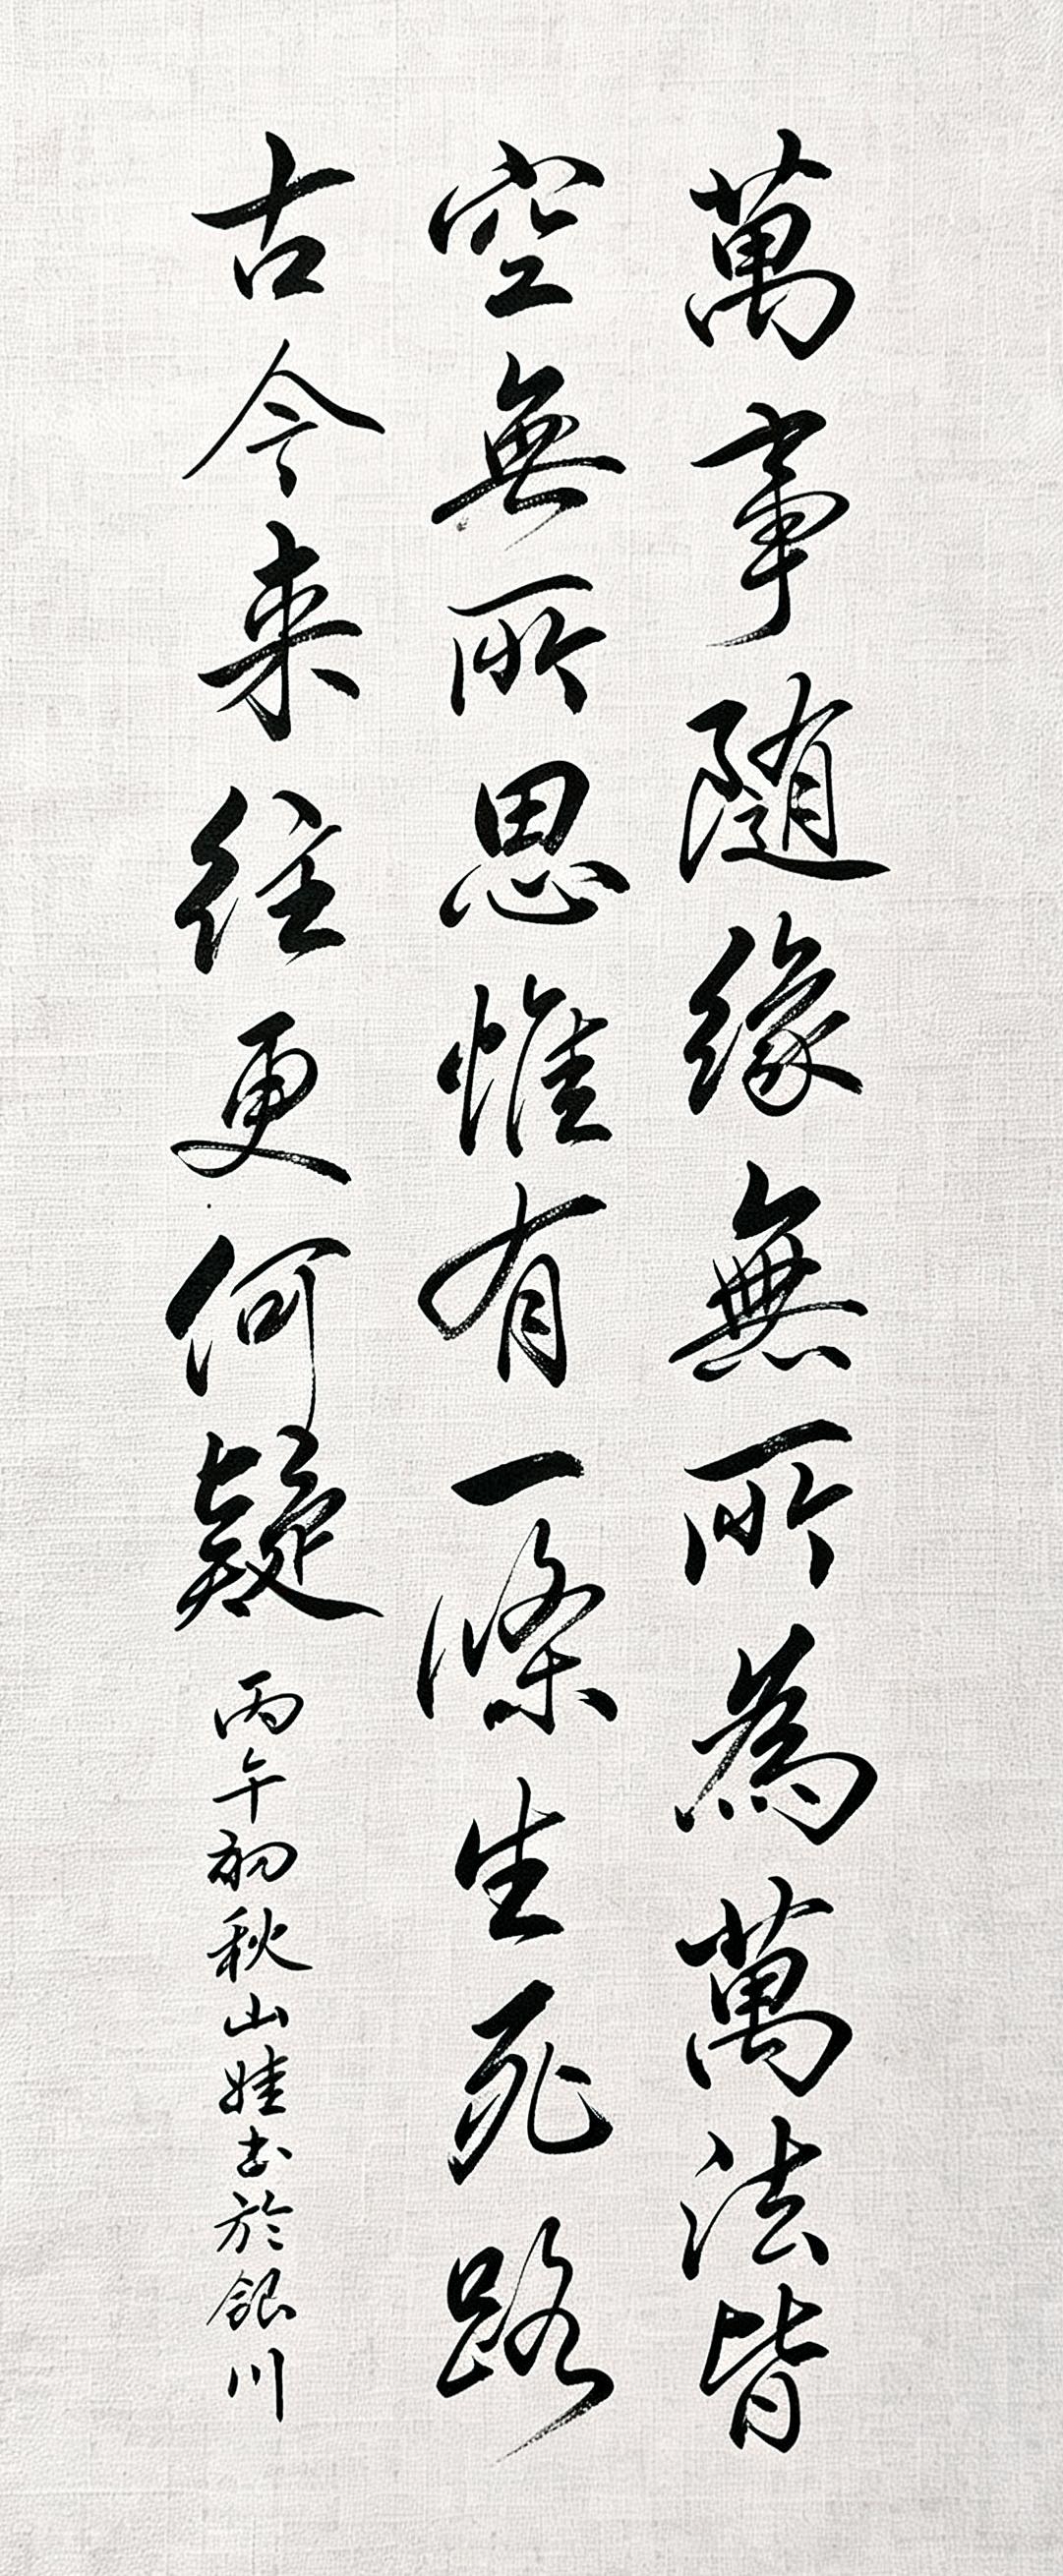 萬事随缘無所為萬法皆
空無所思惟有一條生死路
古今来往更何疑
丙午初秋山娃书於银川